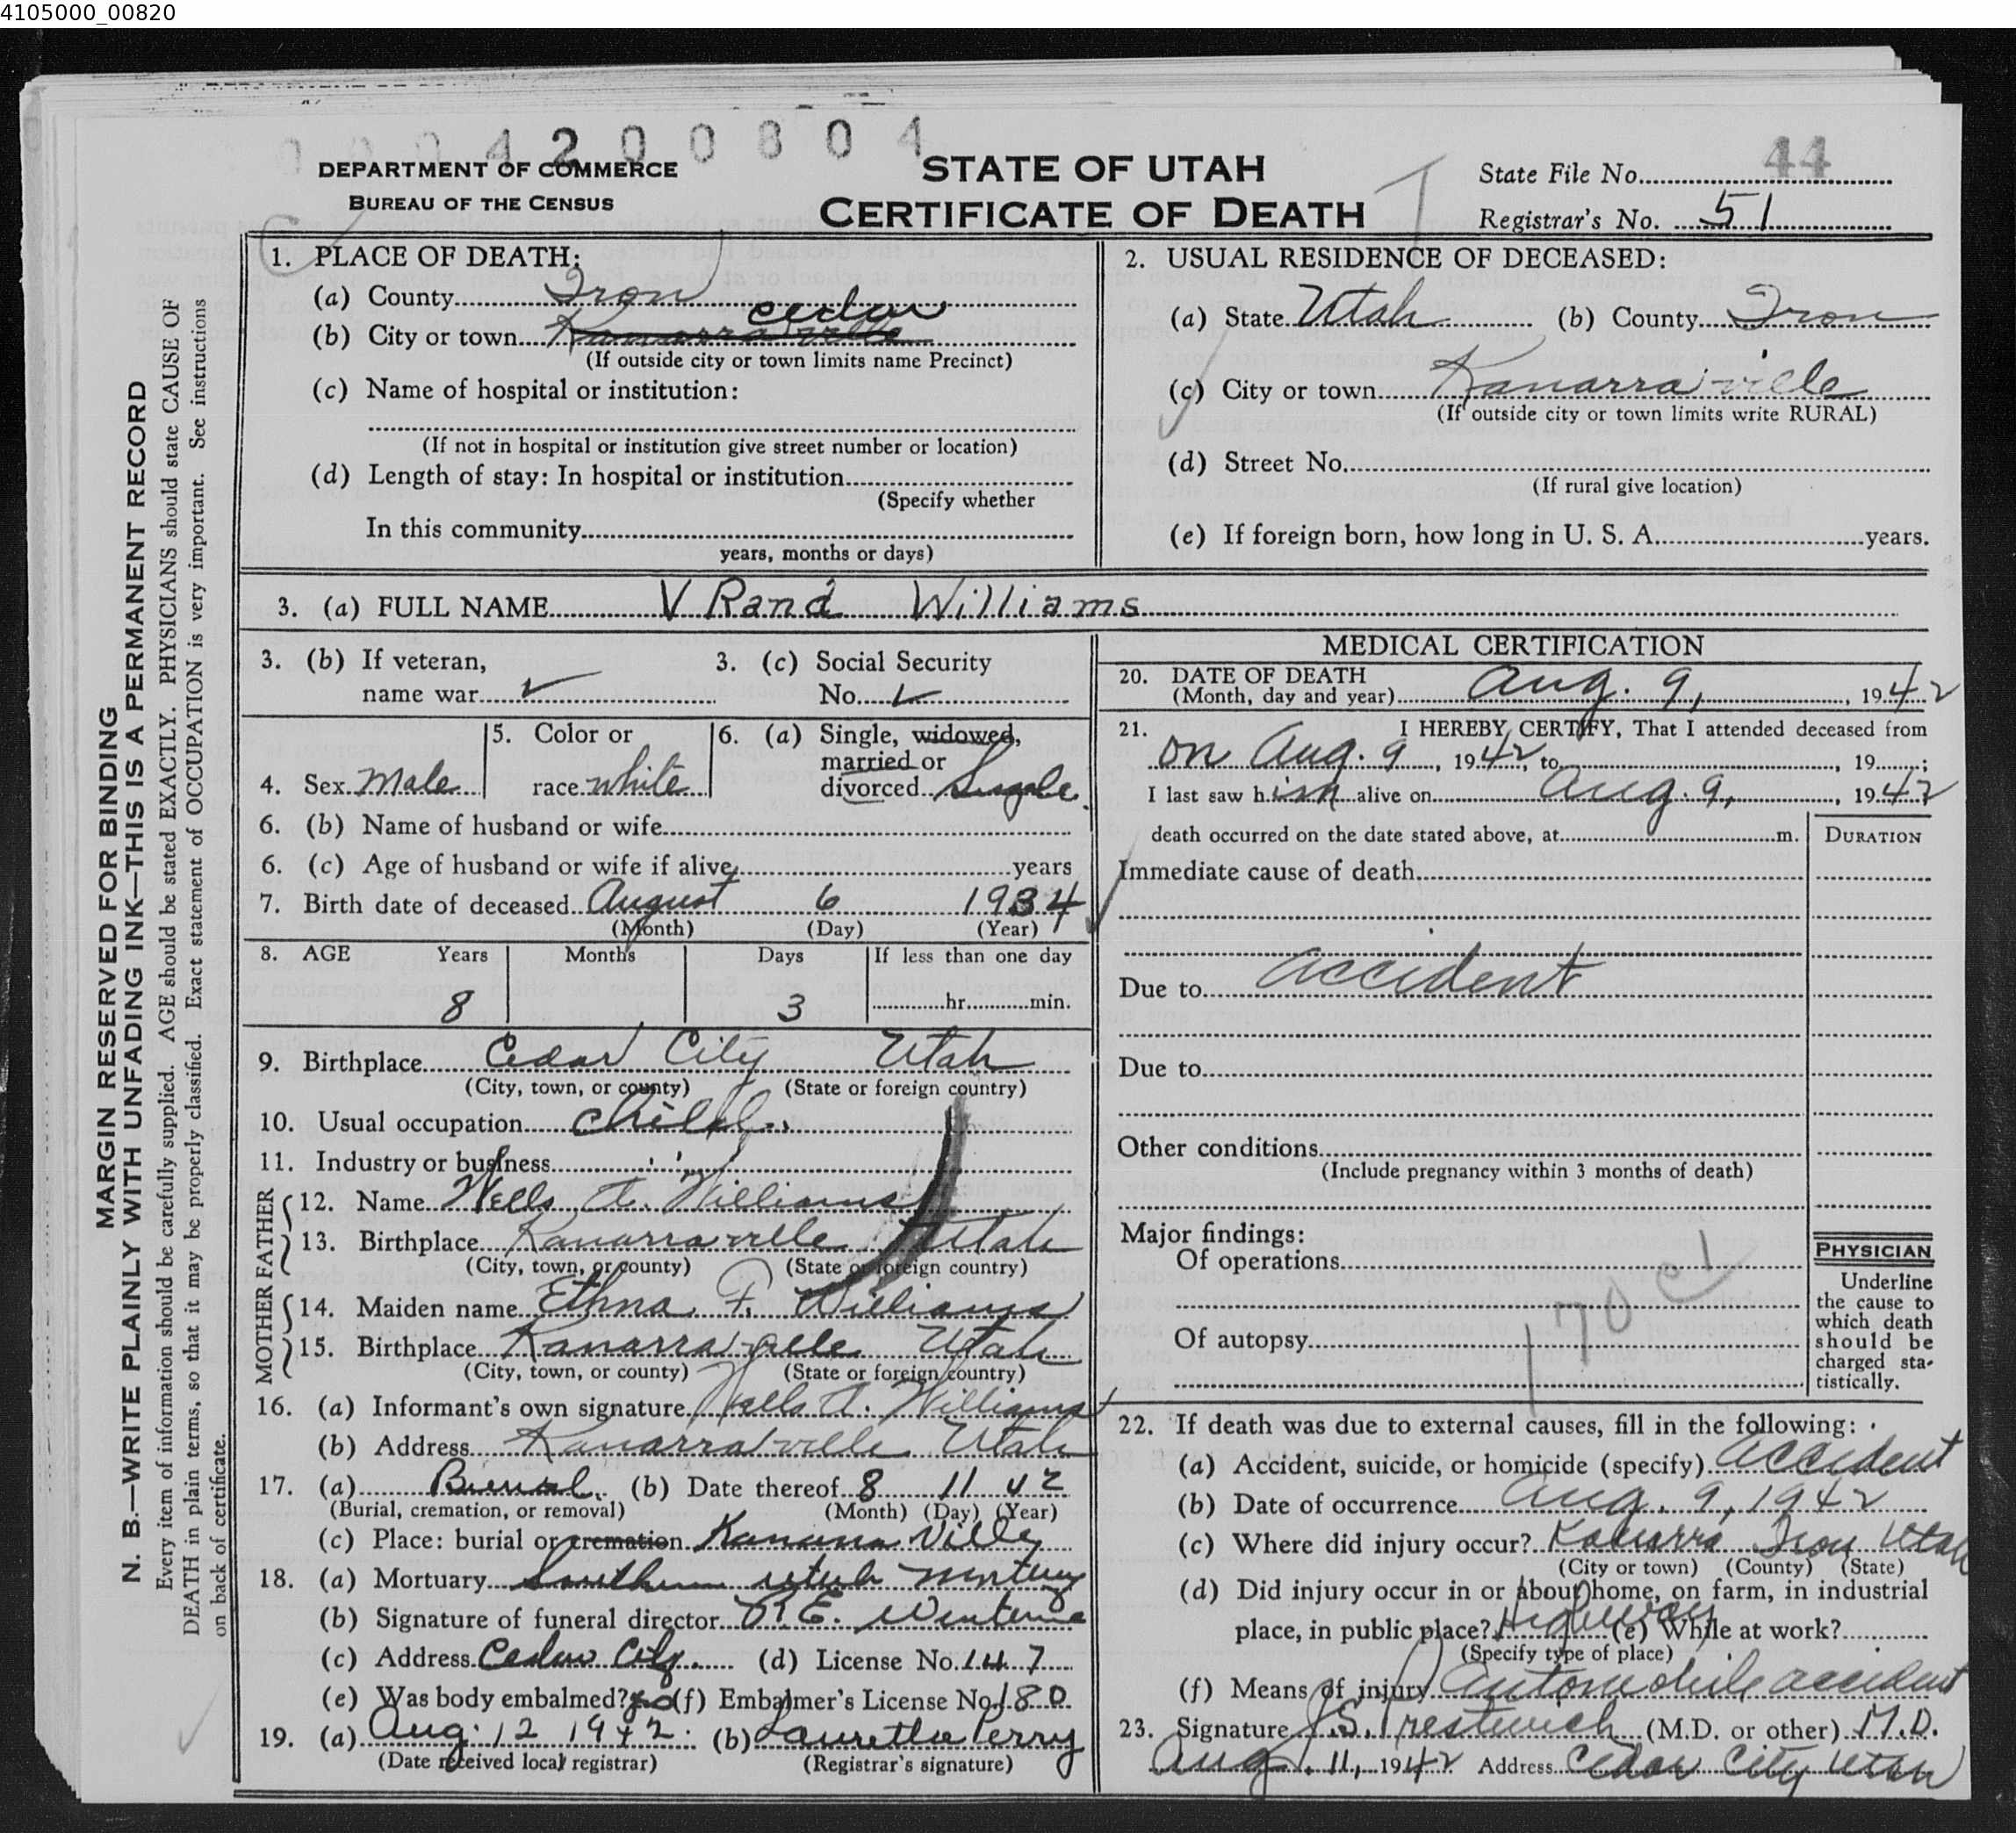 4105000_00820
0004200804
DEPARTMENT OF COMMERCE
BUREAU OF THE CENSUS
STATE OF UTAH
CERTIFICATE OF DEATH
State File No. 44
Registrar's No. 51
MARGIN RESERVED FOR BINDING
N. B.—WRITE PLAINLY WITH UNFADING INK—THIS IS A PERMANENT RECORD
Every item of information should be carefully supplied. AGE should be stated EXACTLY. PHYSICIANS should state CAUSE OF
DEATH in plain terms, so that it may be properly classified. Exact statement of OCCUPATION is very important. See instructions
on back of certificate.
1. PLACE OF DEATH:
(a) County Iron
cedar
(b) City or town Kanarraville
(If outside city or town limits name Precinct)
(c) Name of hospital or institution:
(If not in hospital or institution give street number or location)
(d) Length of stay: In hospital or institution
(Specify whether
In this community
years, months or days)
2. USUAL RESIDENCE OF DECEASED:
(a) State Utah (b) County Iron
(c) City or town Kanarraville
(If outside city or town limits write RURAL)
(d) Street No.
(If rural give location)
(e) If foreign born, how long in U. S. A. years.
3. (a) FULL NAME V Rand Williams
3. (b) If veteran, 3. (c) Social Security
name war No.
4. Sex Male 5. Color or race white 6. (a) Single, widowed, married or divorced Single
6. (b) Name of husband or wife
6. (c) Age of husband or wife if alive years
7. Birth date of deceased August 6 1934
(Month) (Day) (Year)
8. AGE Years Months Days If less than one day
8 3 hr. min.
9. Birthplace Cedar City Utah
(City, town, or county) (State or foreign country)
10. Usual occupation child
11. Industry or business
FATHER
12. Name Wells A. Williams
13. Birthplace Kanarraville Utah
(City, town, or county) (State or foreign country)
MOTHER
14. Maiden name Ethna P. Williams
15. Birthplace Kanarraville Utah
(City, town, or county) (State or foreign country)
16. (a) Informant's own signature Wells A. Williams
(b) Address Kanarraville Utah
17. (a) Burial (b) Date thereof 8 11 42
(Burial, cremation, or removal) (Month) (Day) (Year)
(c) Place: burial or cremation Kanarra Ville
18. (a) Mortuary Southern Utah Mortuary
(b) Signature of funeral director
(c) Address Cedar City (d) License No. 147
(e) Was body embalmed? (f) Embalmer's License No. 180
19. (a) Aug. 12 1942 (b) Lauretta Perry
(Date received local registrar) (Registrar's signature)
MEDICAL CERTIFICATION
20. DATE OF DEATH
(Month, day and year) Aug. 9, 1942
21. I HEREBY CERTIFY, That I attended deceased from
on Aug. 9, 1942, to , 19 ;
I last saw him alive on Aug. 9, 1942
death occurred on the date stated above, at m. DURATION
Immediate cause of death
Due to accident
Due to
Other conditions
(Include pregnancy within 3 months of death)
Major findings:
Of operations
170 c
Of autopsy
PHYSICIAN
Underline
the cause to
which death
should be
charged sta-
tistically.
22. If death was due to external causes, fill in the following:
(a) Accident, suicide, or homicide (specify) Accident
(b) Date of occurrence Aug. 9, 1942
(c) Where did injury occur? Kanarra Iron Utah
(City or town) (County) (State)
(d) Did injury occur in or about home, on farm, in industrial
place, in public place? Highway (e) While at work?
(Specify type of place)
(f) Means of injury Automobile accident
23. Signature J.S. Prestwich (M.D. or other) M.D.
Aug. 11, 1942 Address Cedar City Utah